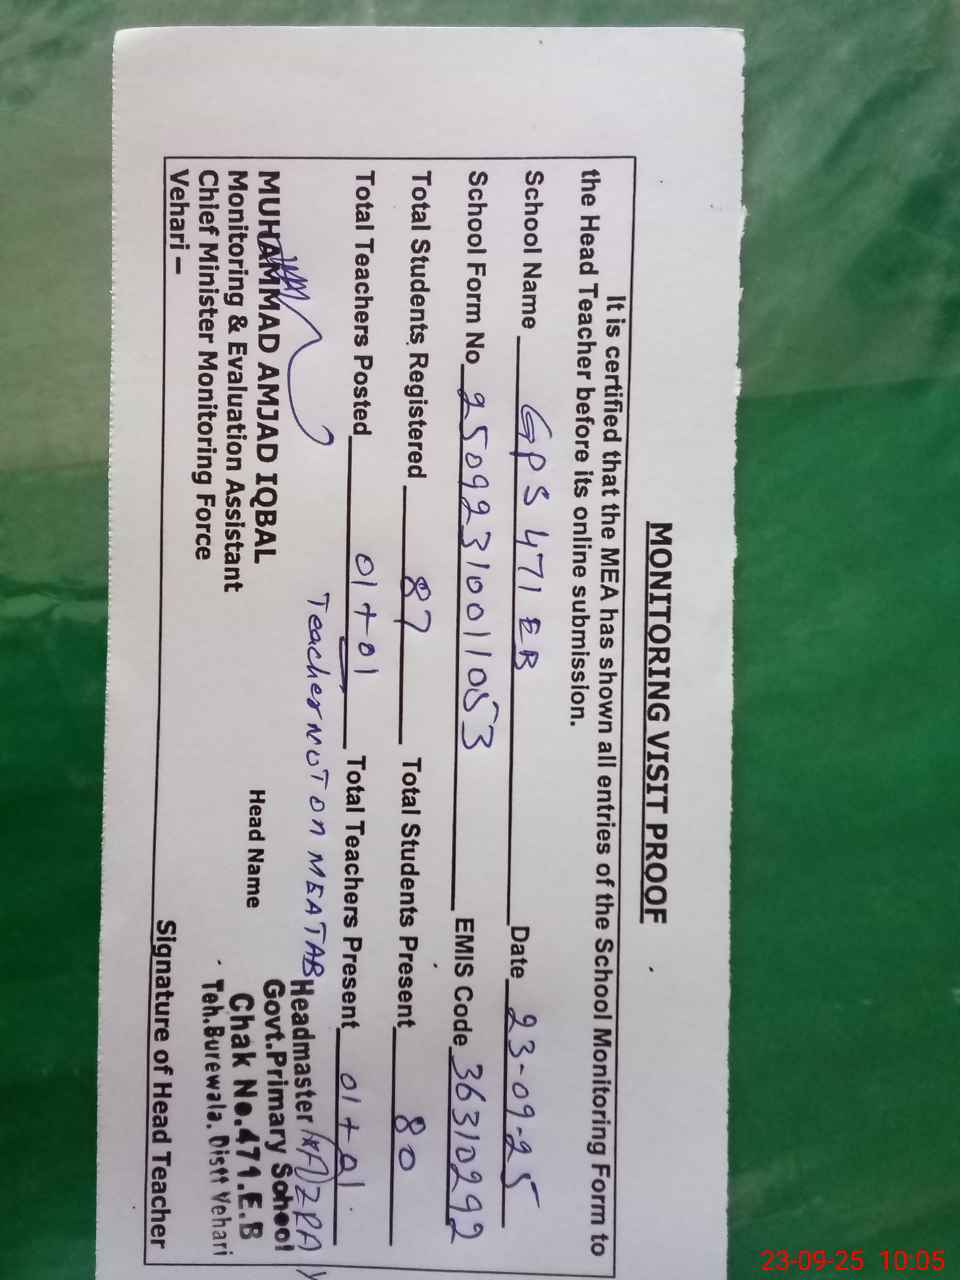 MONITORING VISIT PROOF
It is certified that the MEA has shown all entries of the School Monitoring Form to
the Head Teacher before its online submission.
School Name GPS 471 EB Date 23-09-25
School Form No 2509231001053 EMIS Code 36310292
Total Students Registered 87 Total Students Present 80
Total Teachers Posted 01+01 Total Teachers Present 01+01
Teacher NOT on MEA TAB
MUHAMMAD AMJAD IQBAL
Monitoring & Evaluation Assistant
Chief Minister Monitoring Force
Vehari –
Head Name
Headmaster
Govt.Primary School
Chak No.471.E.B
Teh.Burewala. Distt Vehari
Signature of Head Teacher
23-09-25 10:05